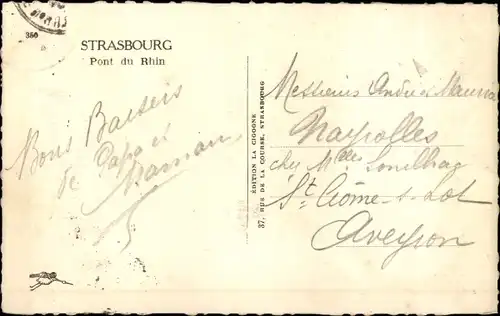 350
STRASBOURG
Pont du Rhin
Bons Baisers
de Papa et
Maman
EDITION LA CIGOGNE
37, RUE DE LA COURSE, STRASBOURG
Messieurs André & Maurice
Nayrolles
chez Melles
St Côme s. Lot
Aveyron